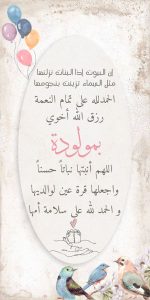 إن البيوت إذا البنات نزلنها
مثل السماء تزينت بنجومها
الحمدلله على تمام النعمة
رزق الله أخوي
بمولودة
اللهم أنبتها نباتاً حسناً
واجعلها قرة عين لوالديها
و الحمد لله على سلامة أمها